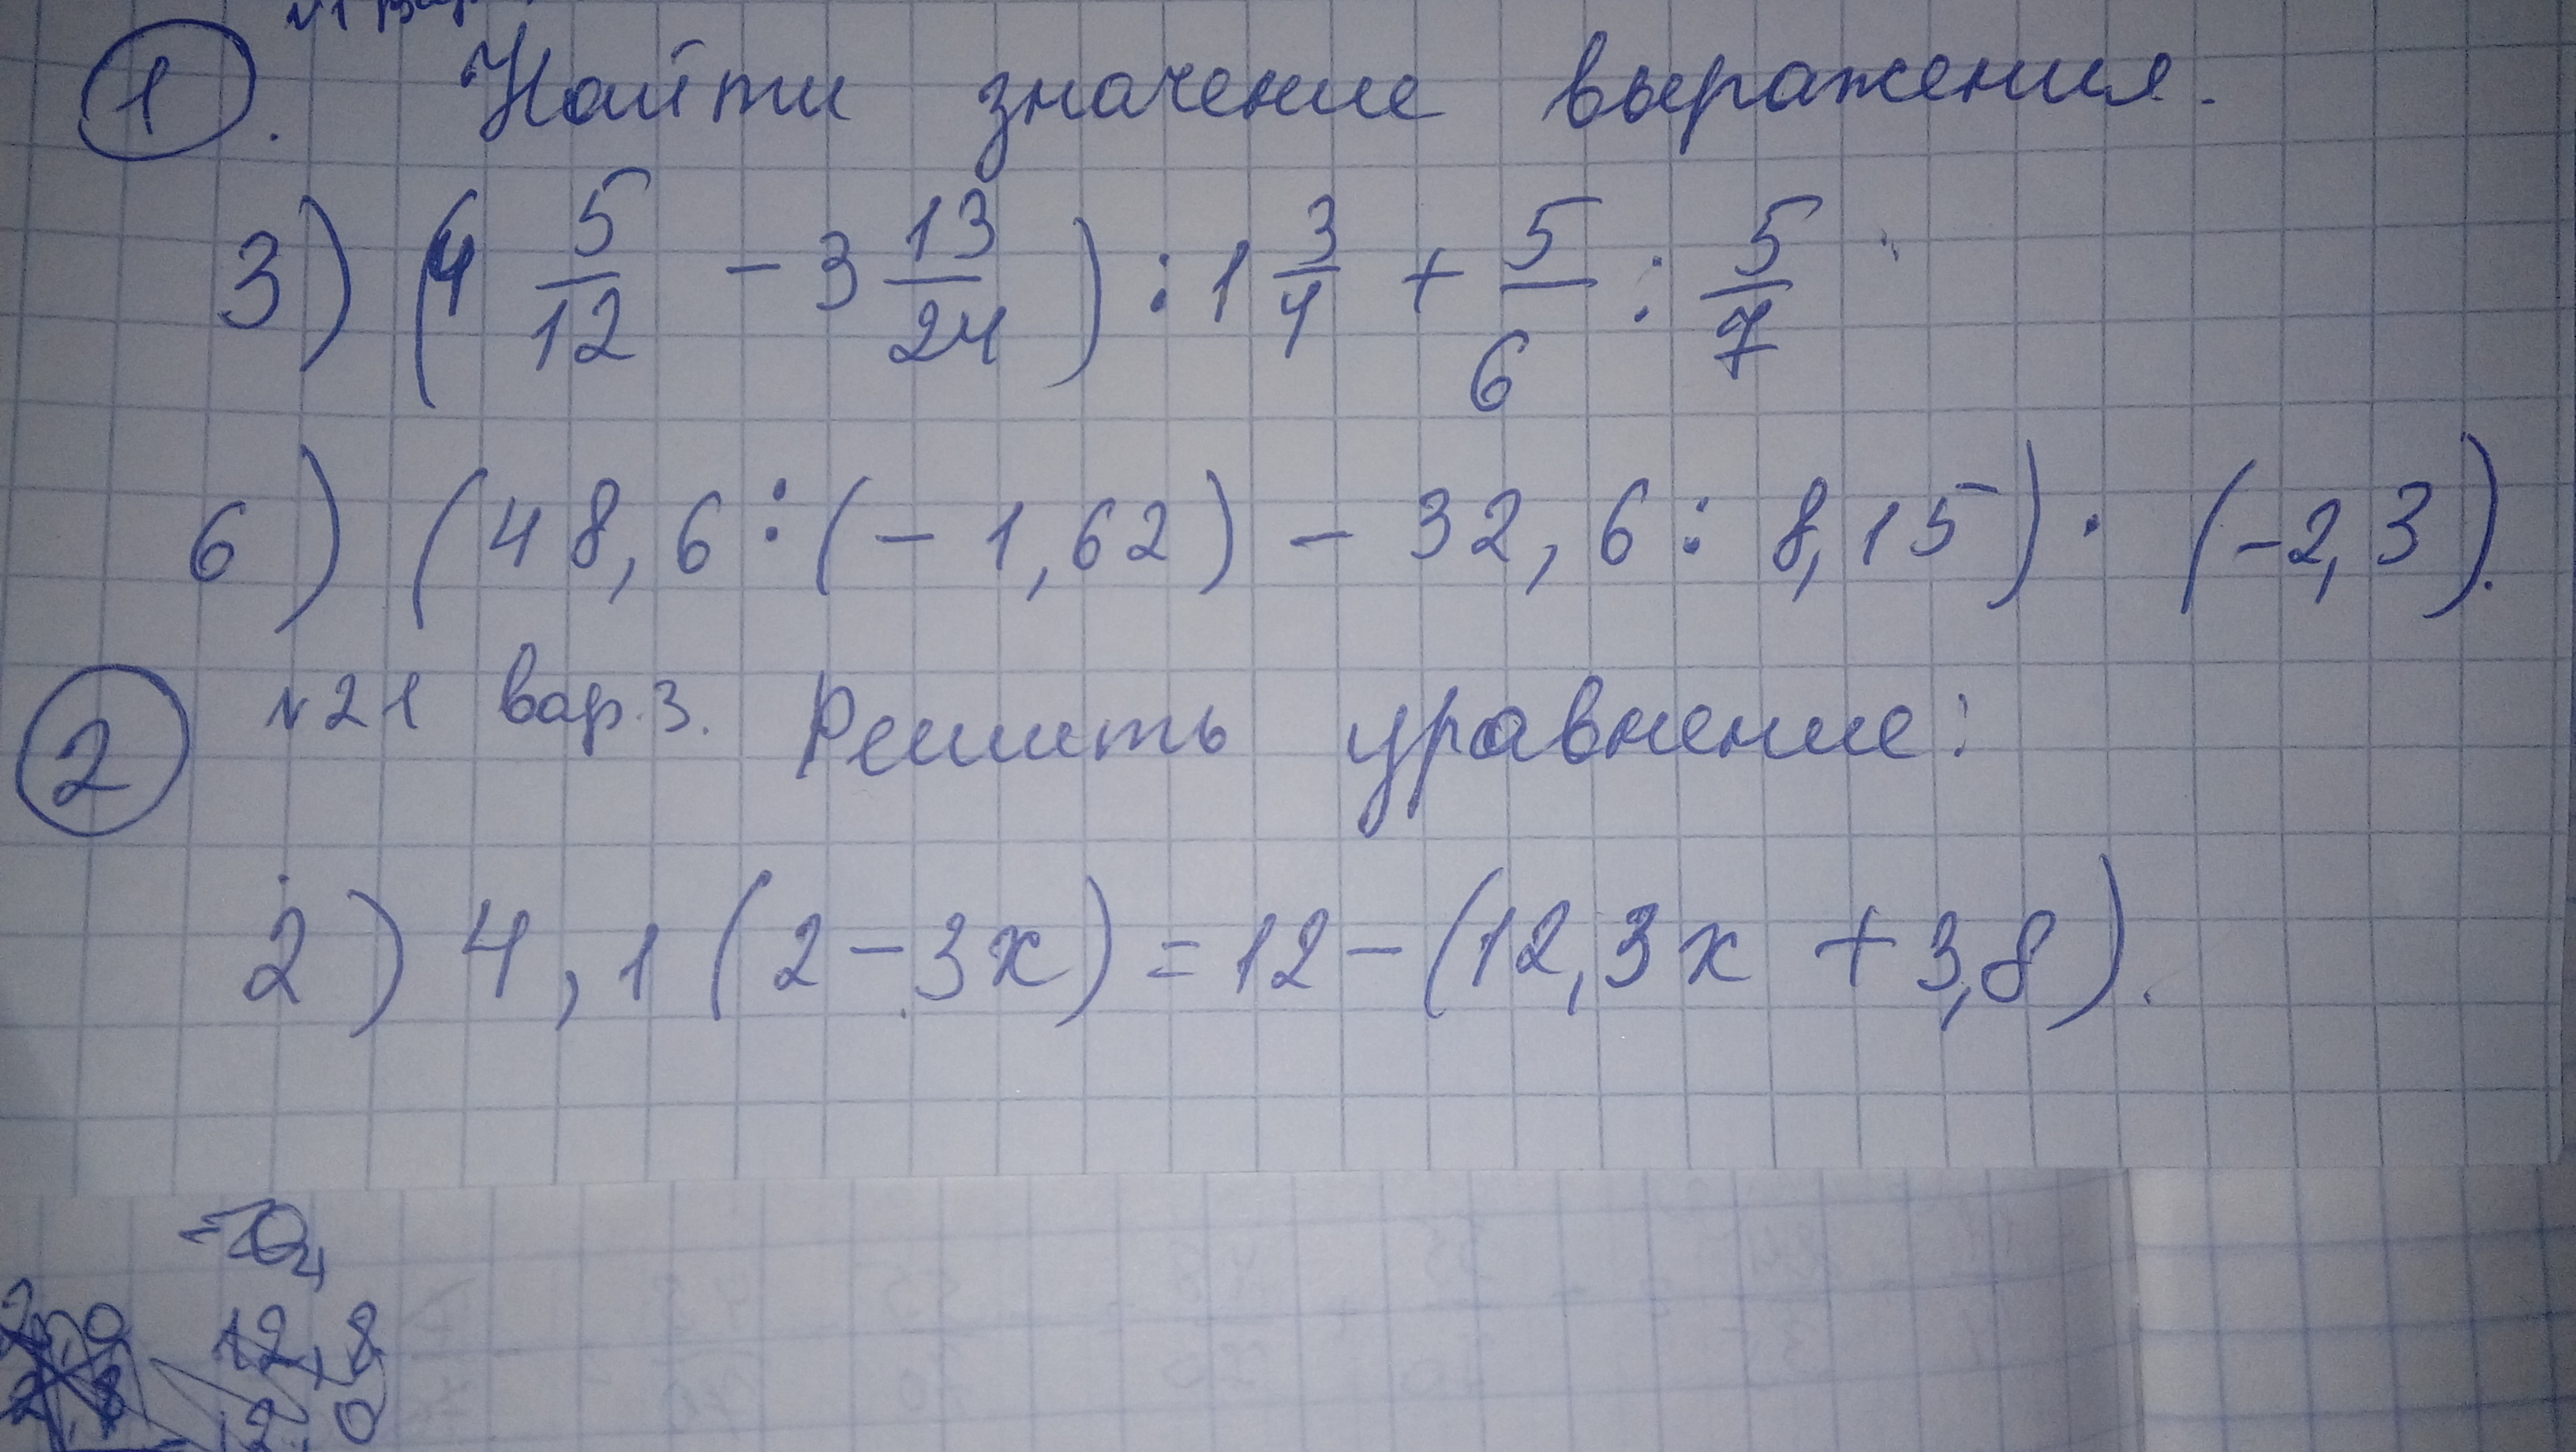 1. Найти значение выражения.
3) (4 5/12 - 3 13/24) : 1 3/4 + 5/6 : 5/7
6) (48,6 : (-1,62) - 32,6 : 8,15) · (-2,3).
2 №21 вар.3. Решить уравнение:
2) 4,1(2-3x) = 12-(12,3x + 3,8).
12,8